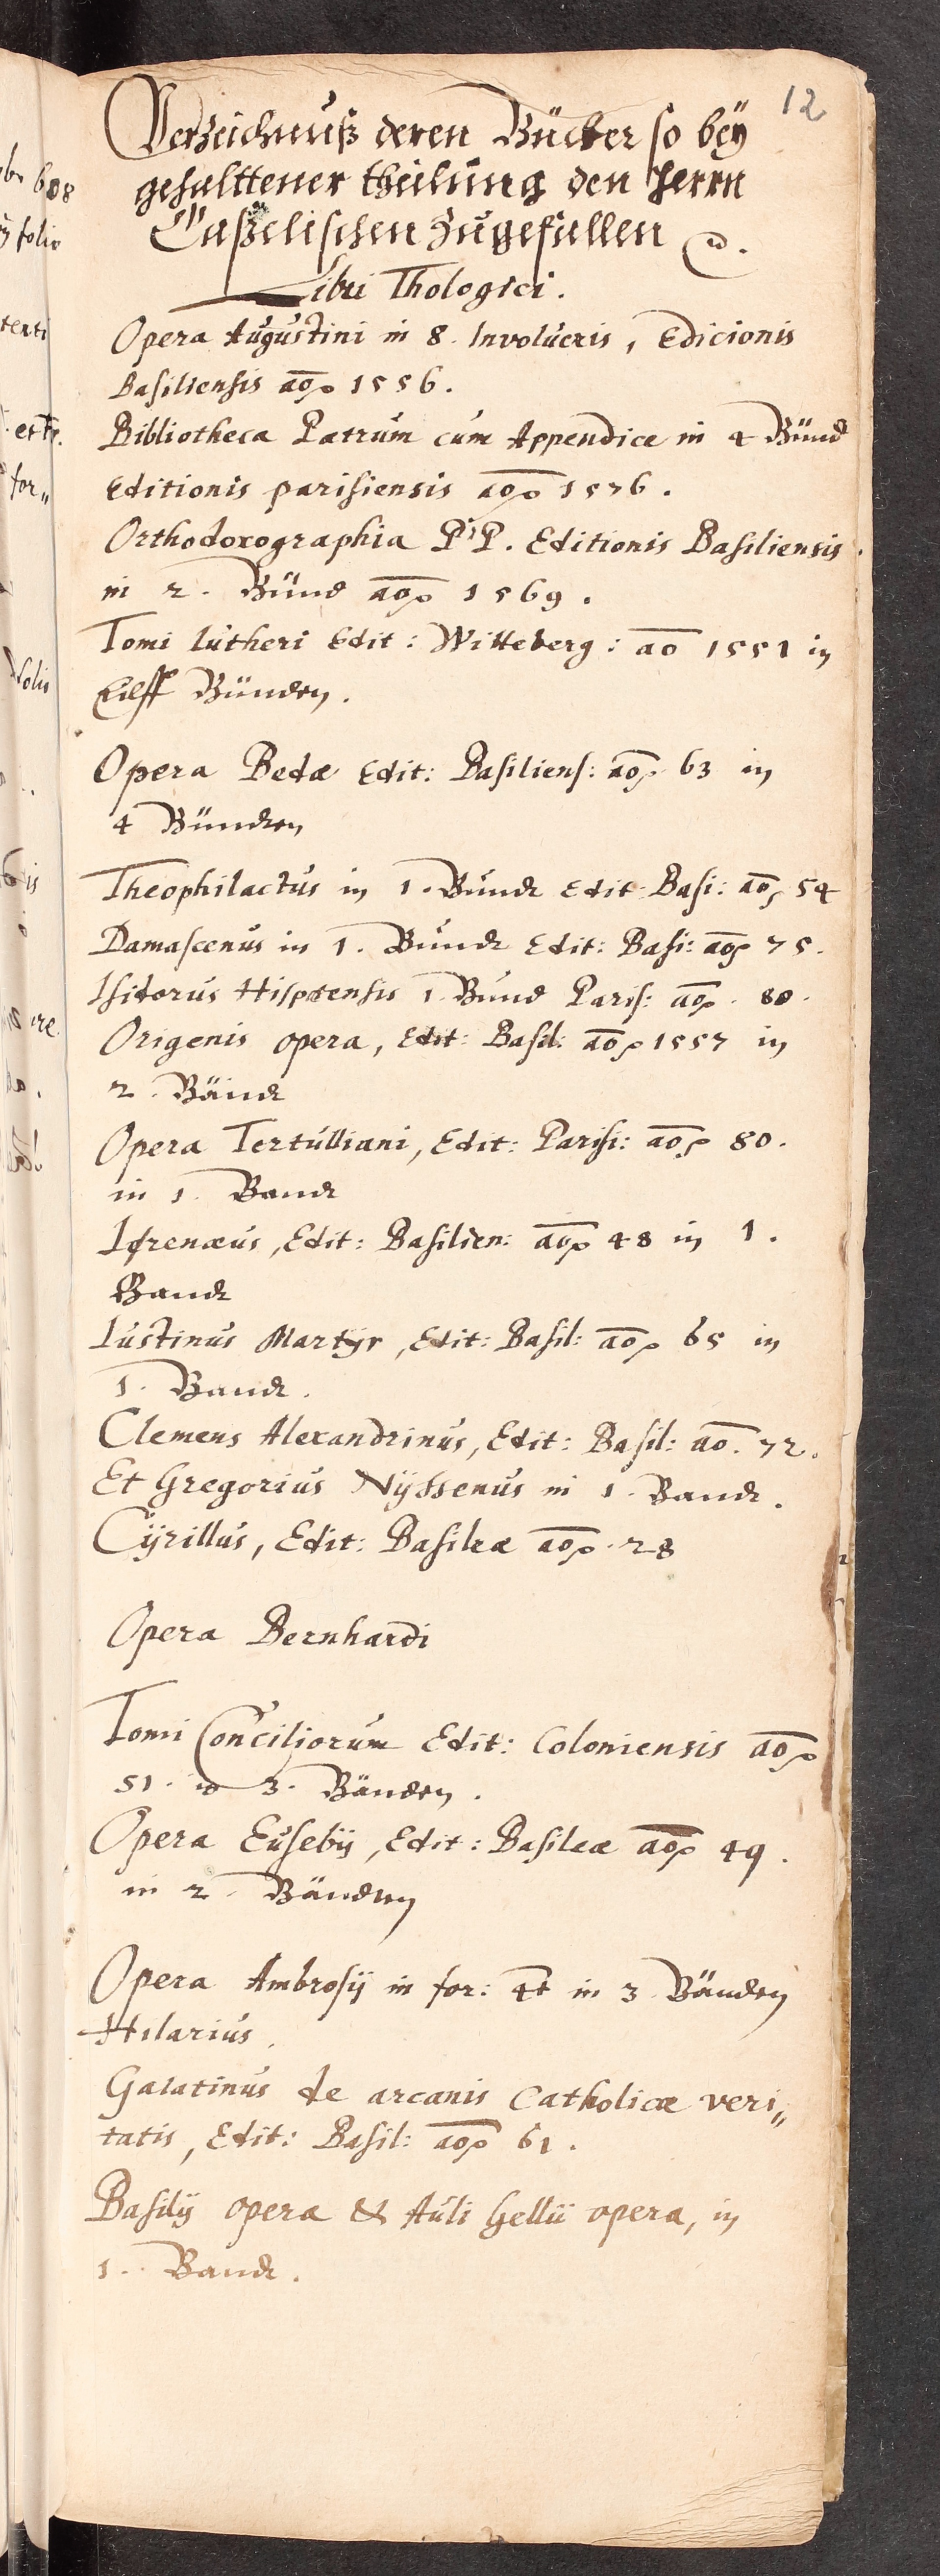 12
Verzeichnuß deren Bücher so beÿ
gehalttener theilung den Herrn
Caßelischen zugefallen
Libri Thologici.
Opera Augustini in 8. Involucris, Edicionis
Basiliensis ao 1556.
Bibliotheca Patrum cum Appendice in 4 Bünd
Editionis parisiensis ao 1576.
Orthodoxographia P P. Editionis Basiliensis.
in 2. Bünd ao 1569.
Tomi lutheri Edit: Witteberg: ao 1551 in
Eilff Bünden.
Opera Bedæ Edit: Basiliens: ao 63 in
4 Bünden
Theophilactus in 1. Bundt Edit Basi: ao 54
Damascenus in 1. Bundt Edit: Basi: ao 75.
Isidorus Hispaensis 1. Bund Paris: ao. 80.
Origenis opera, Edit: Basil: ao 1557 in
2. Bändt
Opera Tertulliani, Edit: Parisi: ao 80.
in 1. Bandt
Irenæus, Edit: Basilien: ao 48 in 1.
Bandt
Iustinus Martÿr, Edit: Basil: ao 65 in
1. Bandt.
Clemens Alexandrinus, Edit: Basil: ao. 72.
Et Gregorius Nÿssenus in 1. Bandt.
Cÿrillus, Edit: Basileæ ao. 28
Opera Bernhardi
Tomi Conciliorum Edit: Coloniensis ao
51. 3. Bänden.
Opera Eusebÿ, Edit: Basileæ ao 49.
in 2. Bänden
Opera Ambrosÿ in for: 4t in 3. Bänden
Hilarius.
Galatinus de arcanis Catholicæ veri„
tatis, Edit: Basil: ao 61.
Basilÿ opera & Auli Gellii opera, in
1. Bandt.